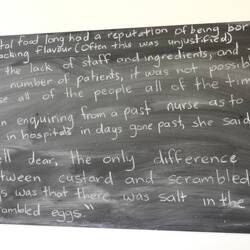 tal food long had a reputation of being bor
acking flavour (Often this was unjustified)
the lack of staff and ingredients, and
number of patients, it was not possib
se all of the people all of the tim
n enquiring from a past nurse as to
in hospitals in days gone past, she said
ell dear, the only difference
tween custard and scrambled
gs was that there was salt in the
rambled eggs."